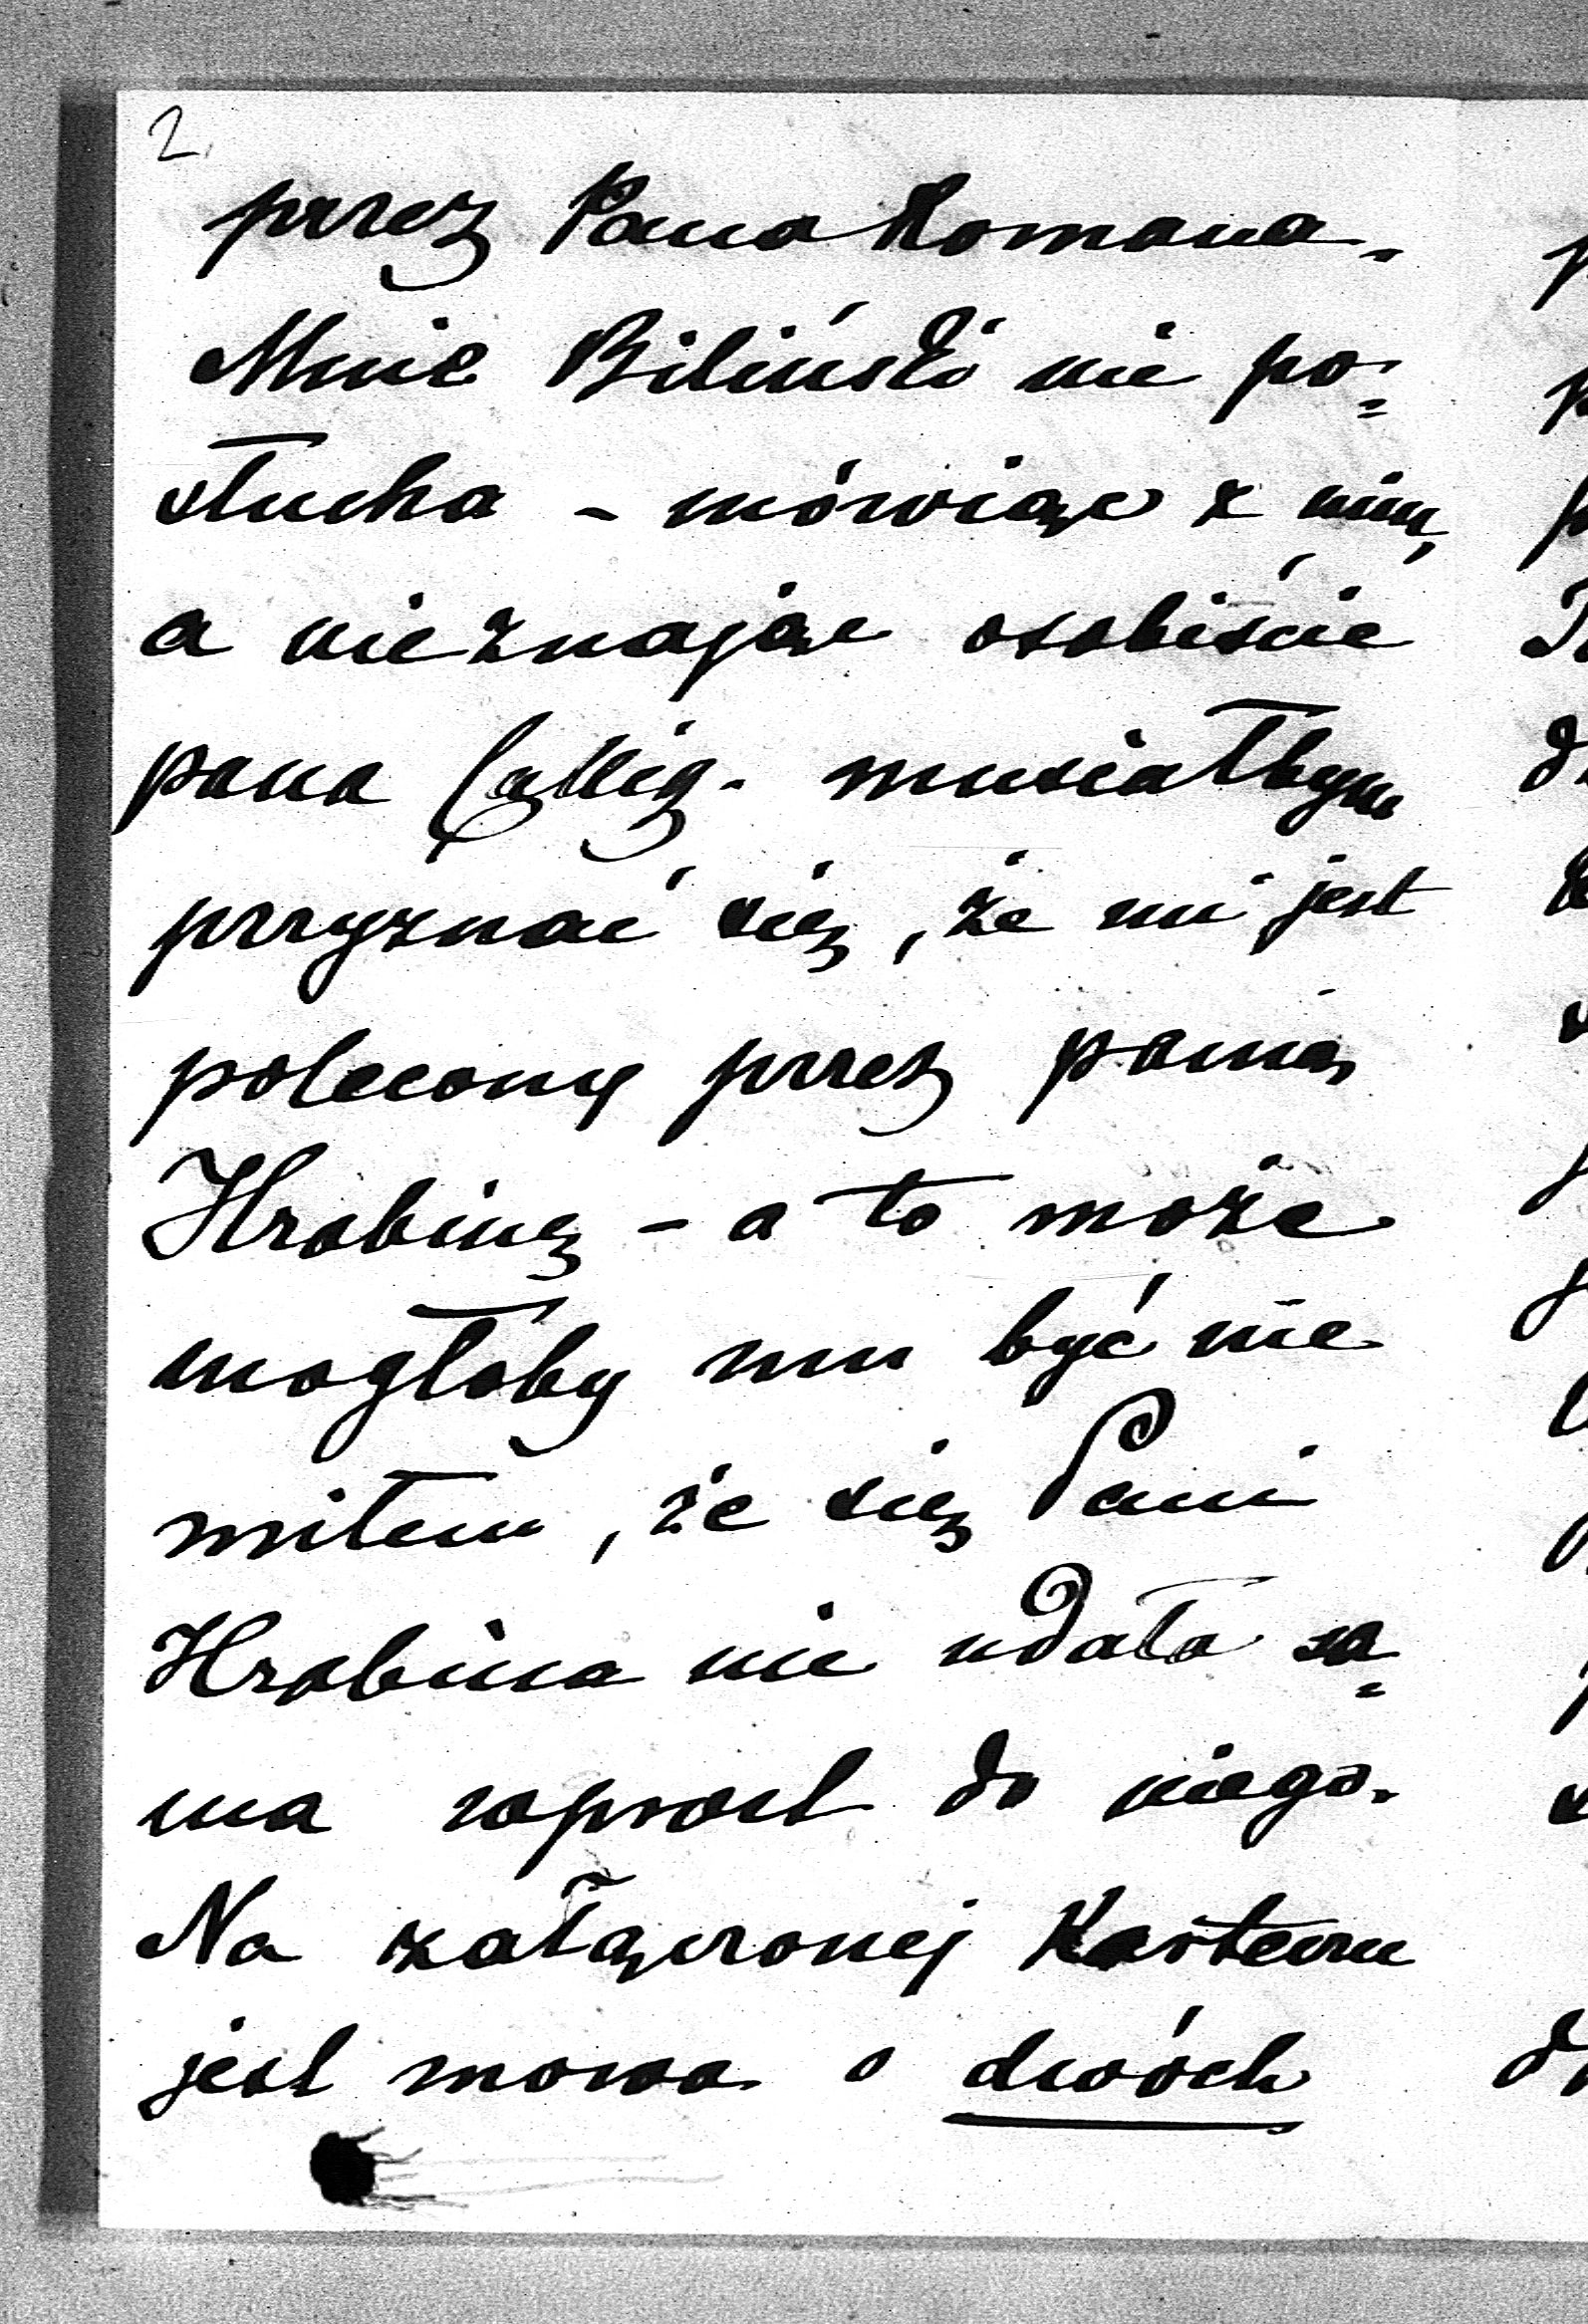 2.
przez Pana Romana.
Mnie Biliński nie po=
słucha - mówiąc z nim,
a nieznając osobiście
pana musiałbym
przyznać się, że mi jest
polecony przez panią
Hrabinę - a to może
mogłoby mu być nie
miłem, że się Pani
Hrabina nie udała sa=
ma wprost do niego.
Na załączonej karteczce
jest mowa o dwóch